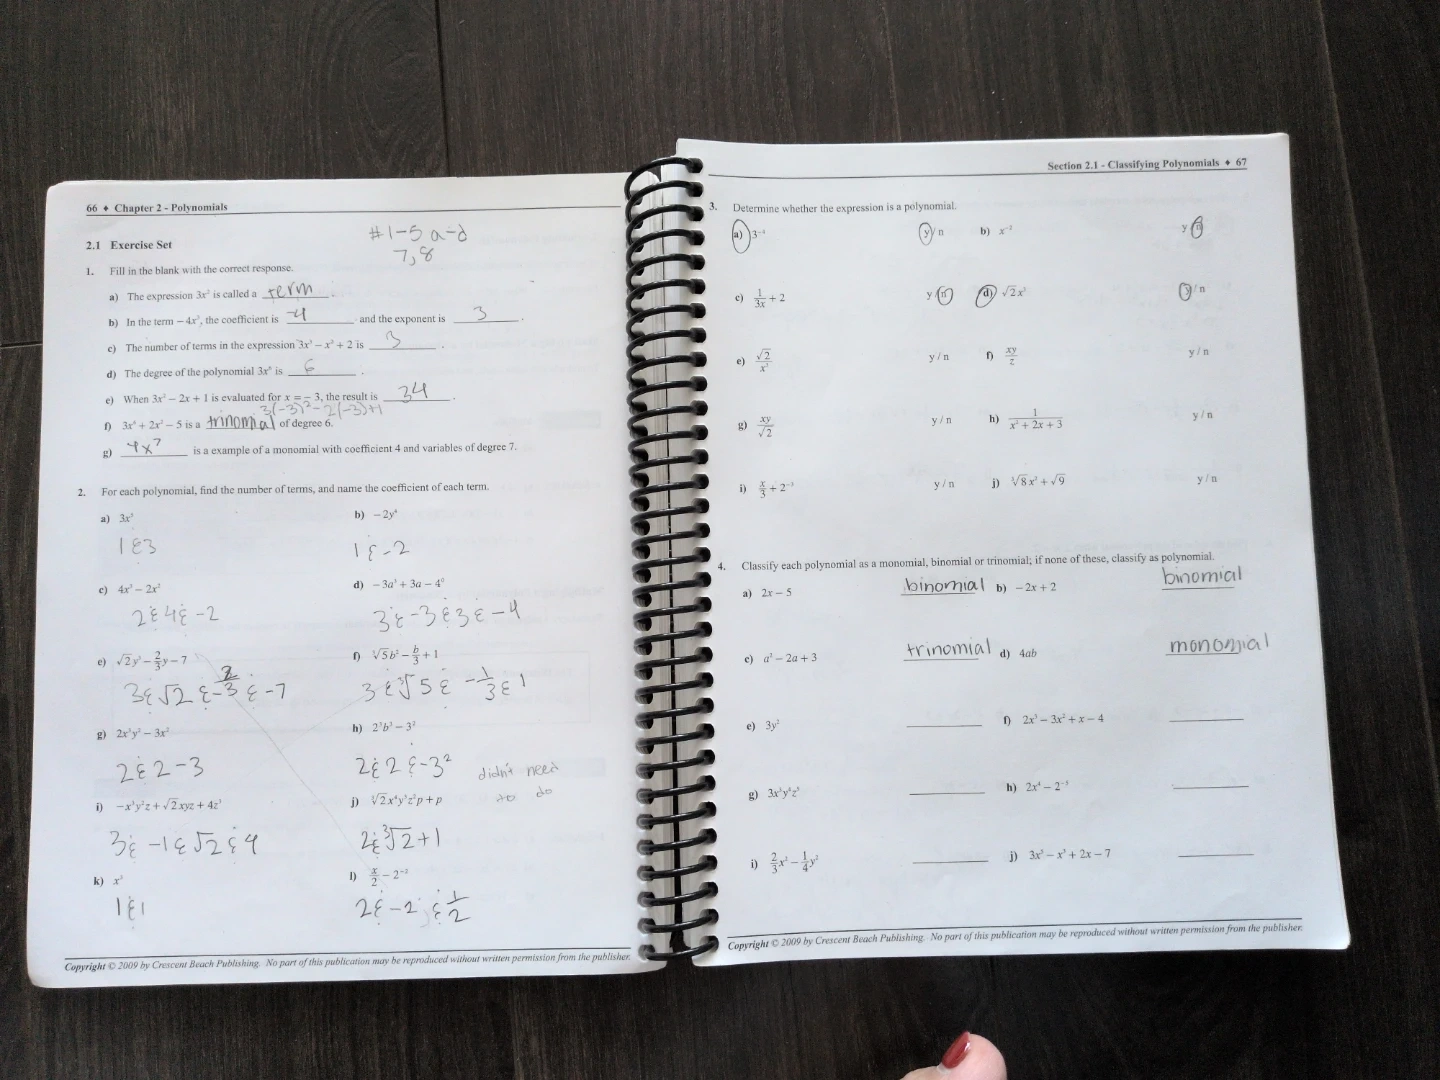 66 ♦ Chapter 2 - Polynomials
#1-5 a-d
7,8
2.1 Exercise Set
1. Fill in the blank with the correct response.
a) The expression 3x² is called a term.
b) In the term – 4x³, the coefficient is -4 and the exponent is 3.
c) The number of terms in the expression 3x³ – x² + 2 is 3.
d) The degree of the polynomial 3x⁶ is 6.
e) When 3x² – 2x + 1 is evaluated for x = – 3, the result is 34.
3(-3)²-2(-3)+1
f) 3x⁶ + 2x² – 5 is a trinomial of degree 6.
g) 4x⁷ is a example of a monomial with coefficient 4 and variables of degree 7.
2. For each polynomial, find the number of terms, and name the coefficient of each term.
a) 3x² b) – 2y⁴
1 & 3 1 & -2
c) 4x³ – 2x² d) – 3a³ + 3a – 4⁰
2 & 4 & -2 3 & -3 & 3 & -4
e) √2y³ – 2/3y – 7 f) ³√5b² – b/3 + 1
3 & √2 & -2/3 & -7 3 & ³√5 & -1/3 & 1
g) 2x³y³ – 3x² h) 2³b³ – 3²
2 & 2 -3 2 & 2 & -3² didn't need
to do
i) –x³y²z + √2xyz + 4z³ j) ³√2x⁴y³z²p + p
3 & -1 & √2 & 4 2 & ³√2 + 1
k) x³ l) x/2 – 2⁻²
1 & 1 2 & -2 & 1/2
Copyright © 2009 by Crescent Beach Publishing. No part of this publication may be reproduced without written permission from the publisher.
Section 2.1 - Classifying Polynomials ♦ 67
3. Determine whether the expression is a polynomial.
a) 3⁻⁴ y / n b) x⁻² y / n
c) 1/3x + 2 y / n d) √2x³ y / n
e) √2/x² y / n f) xy/z y / n
g) xy/√2 y / n h) 1/x² + 2x + 3 y / n
i) x/3 + 2⁻³ y / n j) ³√8x² + √9 y / n
4. Classify each polynomial as a monomial, binomial or trinomial; if none of these, classify as polynomial.
a) 2x – 5 binomial b) – 2x + 2 binomial
c) a² – 2a + 3 trinomial d) 4ab monomial
e) 3y² f) 2x³ – 3x² + x – 4
g) 3x³y⁴z⁵ h) 2x⁴ – 2⁻³
i) 2/3x² – 1/4y² j) 3x⁵ – x³ + 2x – 7
Copyright © 2009 by Crescent Beach Publishing. No part of this publication may be reproduced without written permission from the publisher.